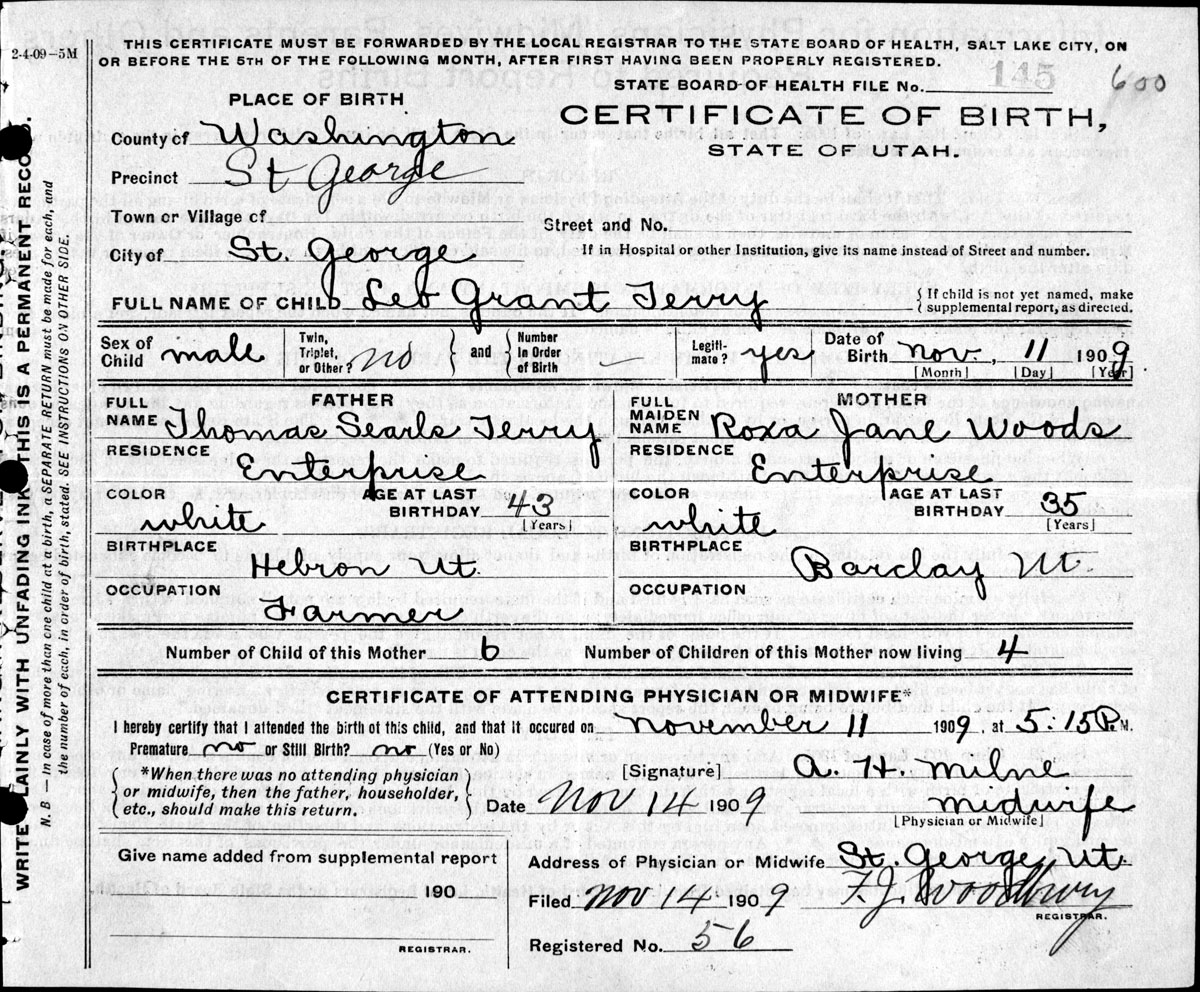 2-4-09-5M
THIS CERTIFICATE MUST BE FORWARDED BY THE LOCAL REGISTRAR TO THE STATE BOARD OF HEALTH, SALT LAKE CITY, ON
OR BEFORE THE 5TH OF THE FOLLOWING MONTH, AFTER FIRST HAVING BEEN PROPERLY REGISTERED.
145 600
STATE BOARD OF HEALTH FILE No.
PLACE OF BIRTH
CERTIFICATE OF BIRTH,
STATE OF UTAH.
County of Washington
Precinct St George
Town or Village of
Street and No.
City of St. George
If in Hospital or other Institution, give its name instead of Street and number.
FULL NAME OF CHILD Leo Grant Terry { If child is not yet named, make supplemental report, as directed.
Sex of Child male Twin, Triplet, or Other? no } and { Number in Order of Birth – Legiti-mate? yes Date of Birth nov. 11 1909
[Month] [Day] [Year]
FATHER
FULL NAME Thomas Searls Terry
RESIDENCE Enterprise
COLOR white AGE AT LAST BIRTHDAY 43 [Years]
BIRTHPLACE Hebron Ut.
OCCUPATION Farmer
MOTHER
FULL MAIDEN NAME Roxa Jane Woods
RESIDENCE Enterprise
COLOR white AGE AT LAST BIRTHDAY 35 [Years]
BIRTHPLACE Barclay Ut.
OCCUPATION
Number of Child of this Mother 6 Number of Children of this Mother now living 4
CERTIFICATE OF ATTENDING PHYSICIAN OR MIDWIFE*
I hereby certify that I attended the birth of this child, and that it occured on november 11 1909, at 5:15 P.M.
Premature no or Still Birth? no (Yes or No)
{ *When there was no attending physician
or midwife, then the father, householder,
etc., should make this return. }
[Signature] A. H. Milne
midwife
[Physician or Midwife]
Date Nov 14 1909
Give name added from supplemental report
190
REGISTRAR.
Address of Physician or Midwife St. George, Ut.
Filed Nov 14 1909 F. J. Woodbury
REGISTRAR.
Registered No. 56
WRITE PLAINLY WITH UNFADING INK THIS IS A PERMANENT RECORD.
N. B — In case of more than one child at a birth, a SEPARATE RETURN must be made for each, and
the number of each, in order of birth, stated. SEE INSTRUCTIONS ON OTHER SIDE.